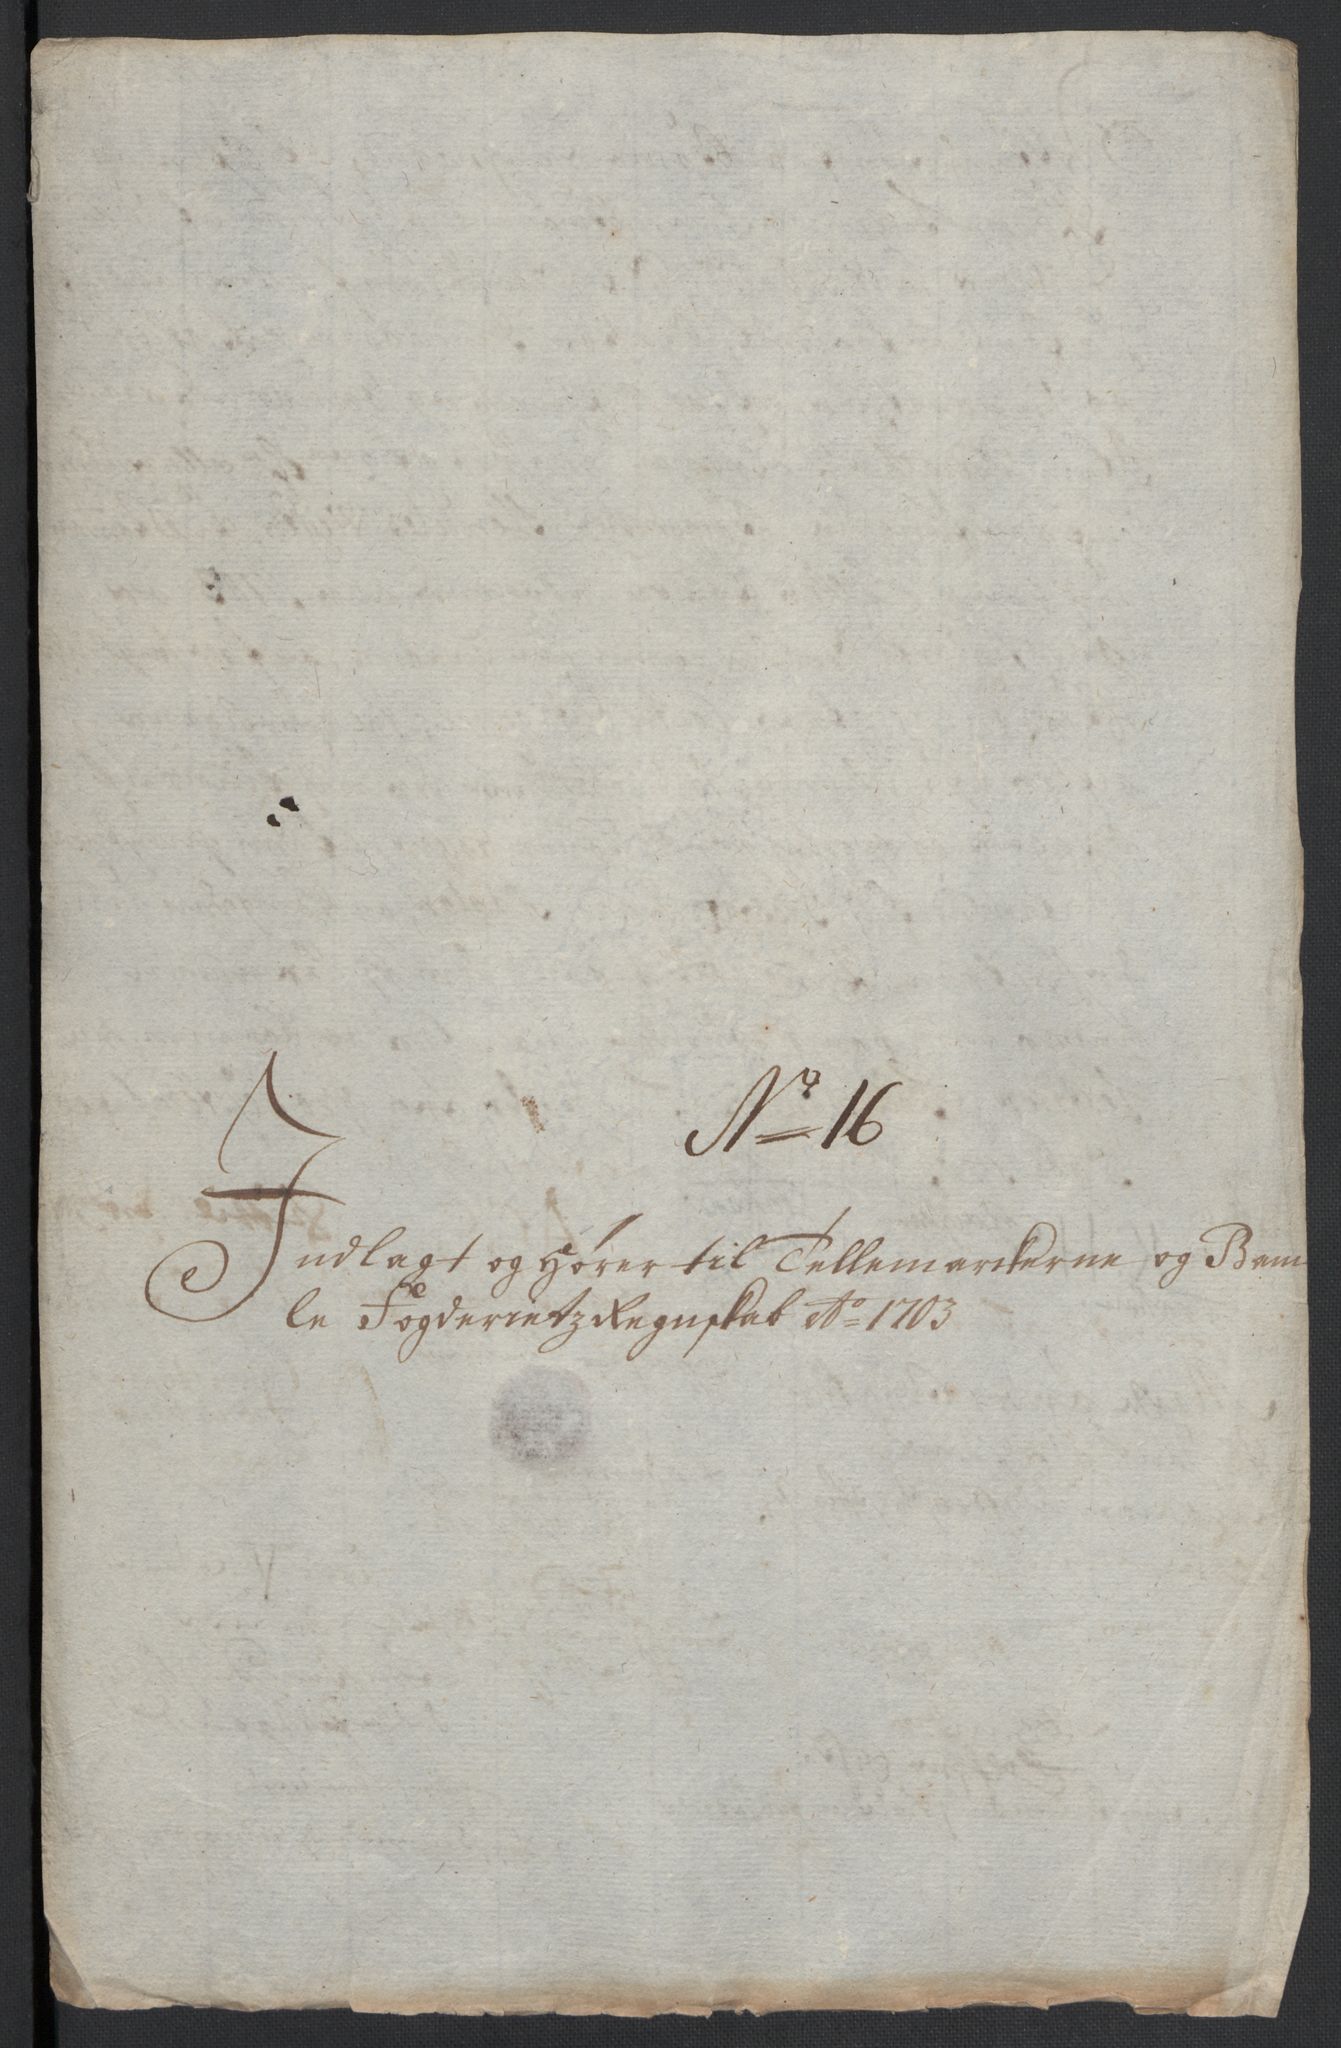 No 16
Indlagt og Hører til Tellemarckerne og Bam
le Fogderietz Regnskab Ao 1703